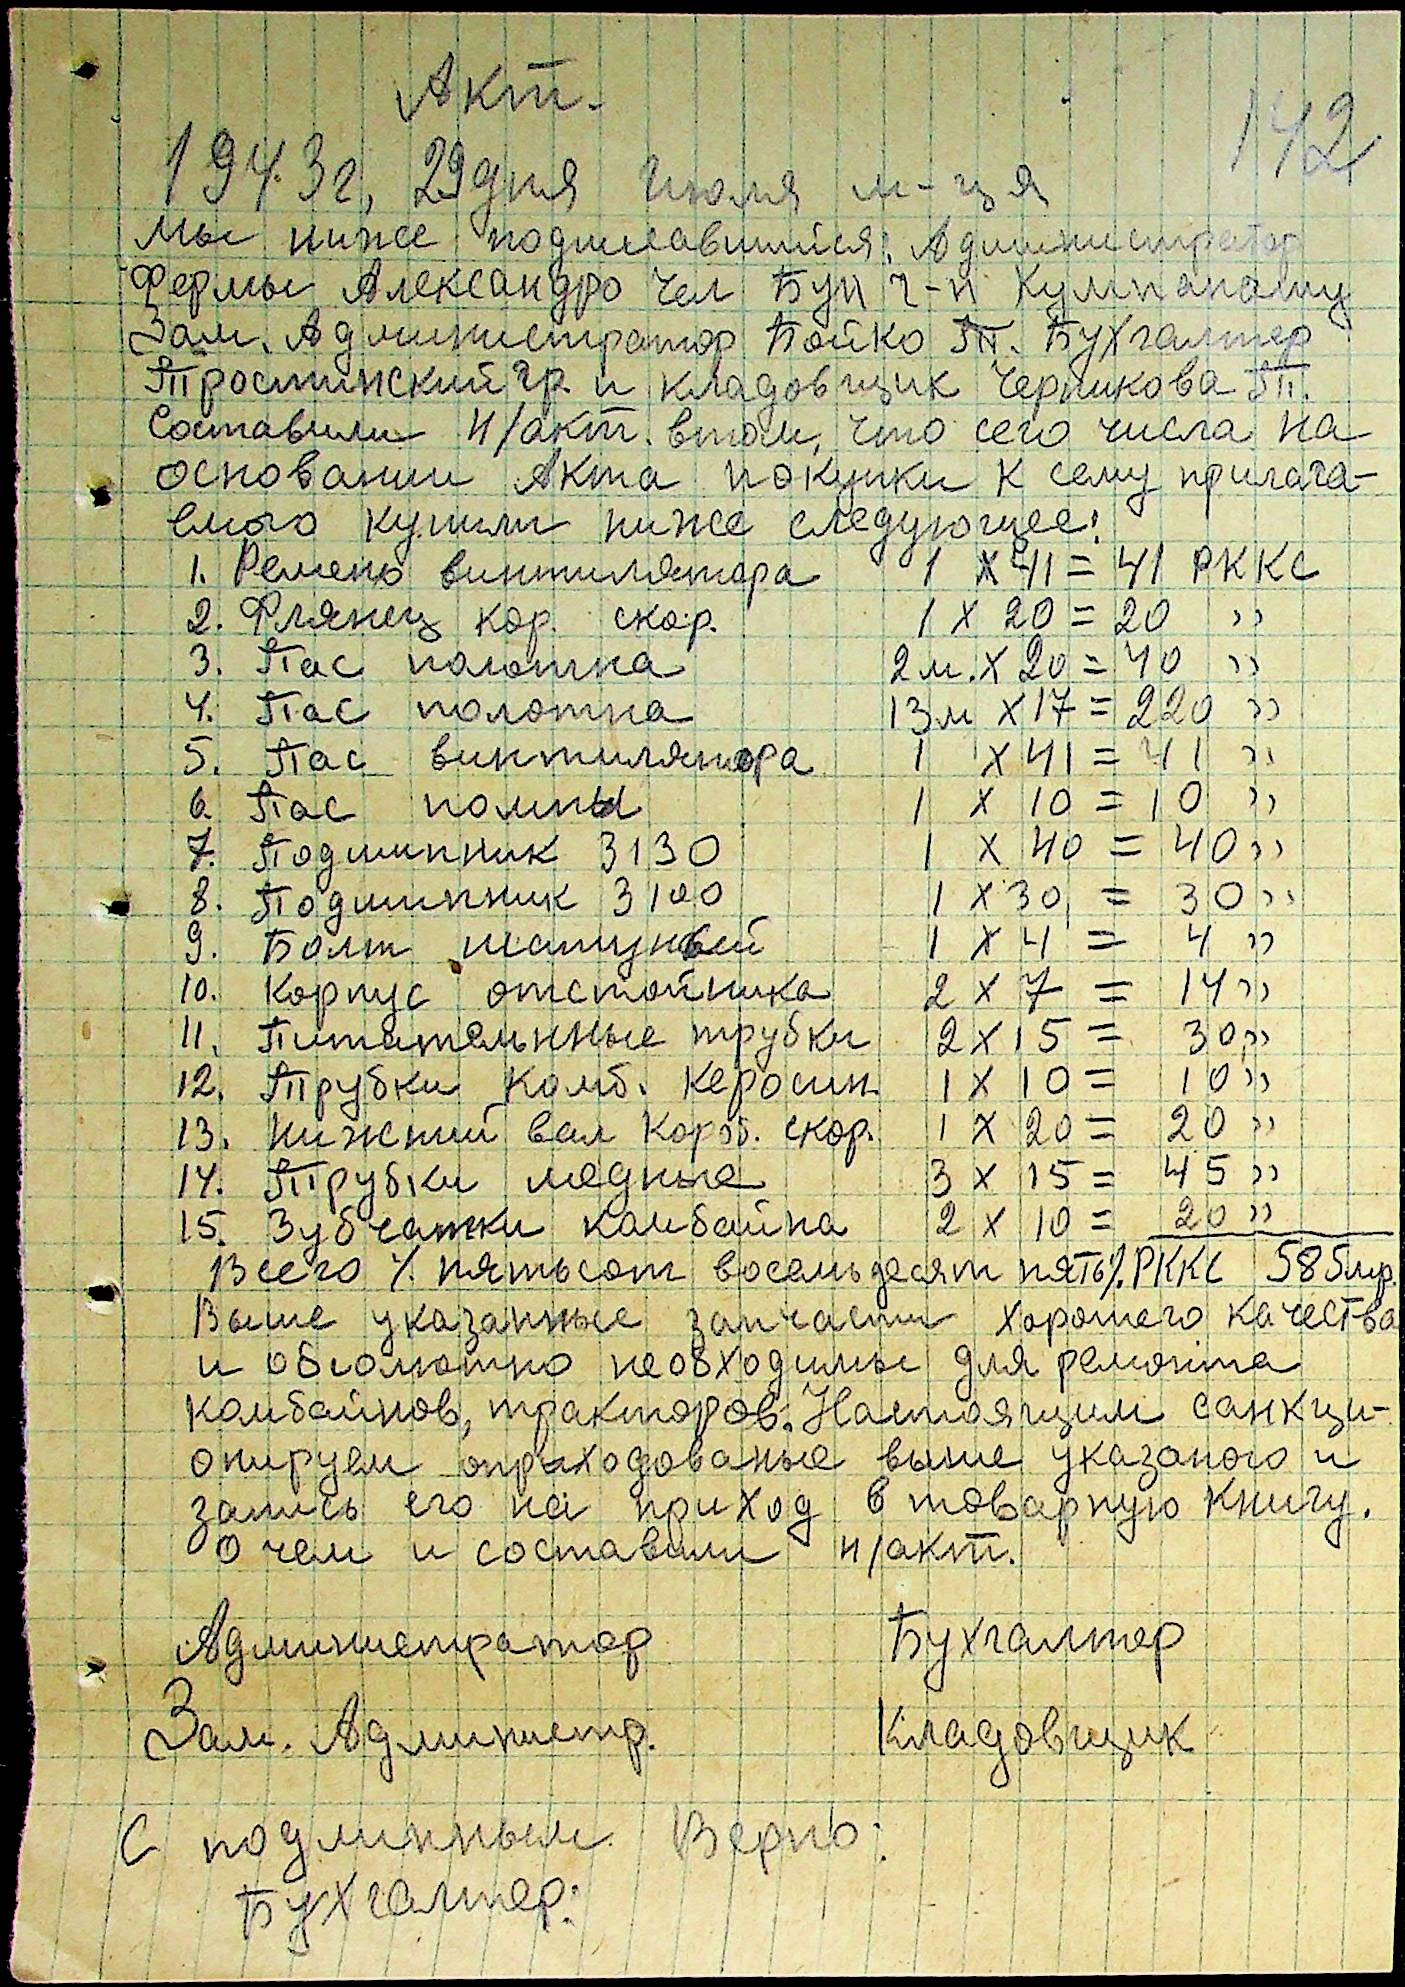 Акт.
142
1943г, 29 дня Июля м-ця
Мы ниже подписавшийся, Администратор
Фермы Александро чел Бун г-н Кумпанашу
Зам. Администратор Бойко П. Бухгалтер
Тростинский Гр. и кладовщик Черникова П.
Составили н/акт. втом, что сего числа на
основании Акта покупки к сему прилага-
емого купили ниже следующее:
1. Ремень винтилятора 1 х 41 = 41 РККС
2. Флянец кор. скор. 1 х 20 = 20 ״
3. Пас полотна 2м. х 20 = 40 ״
4. Пас полотна 13м х 17 = 220 ״
5. Пас винтилятора 1 х 41 = 41 ״
6. Пас помпы 1 х 10 = 10 ״
7. Подшипник 3130 1 х 40 = 40 ״
8. Подшипник 3100 1 х 30 = 30 ״
9. Болт шатунвый 1 х 4 = 4 ״
10. Корпус отстойника 2 х 7 = 14 ״
11. Питательнные трубки 2 х 15 = 30 ״
12. Трубки комб. керосин. 1 х 10 = 10 ״
13. Нижний вал короб. скор. 1 х 20 = 20 ״
14. Трубки медные 3 х 15 = 45 ״
15. Зубчатки комбайна 2 х 10 = 20 ״
Всего /. пятьсот восемьдесят пять/. РККС 585мр.
Выше указанные запчасти хорошего качества
и обсолютно необходимы для ремонта
комбайнов, тракторов. Настоящим санкци-
онируем оприходованые выше указаного и
запись его на приход в товарную книгу.
О чем и составили н/акт.
Администратор Бухгалтер
Зам. Администр. Кладовщик
С подлинным Верно:
Бухгалтер: